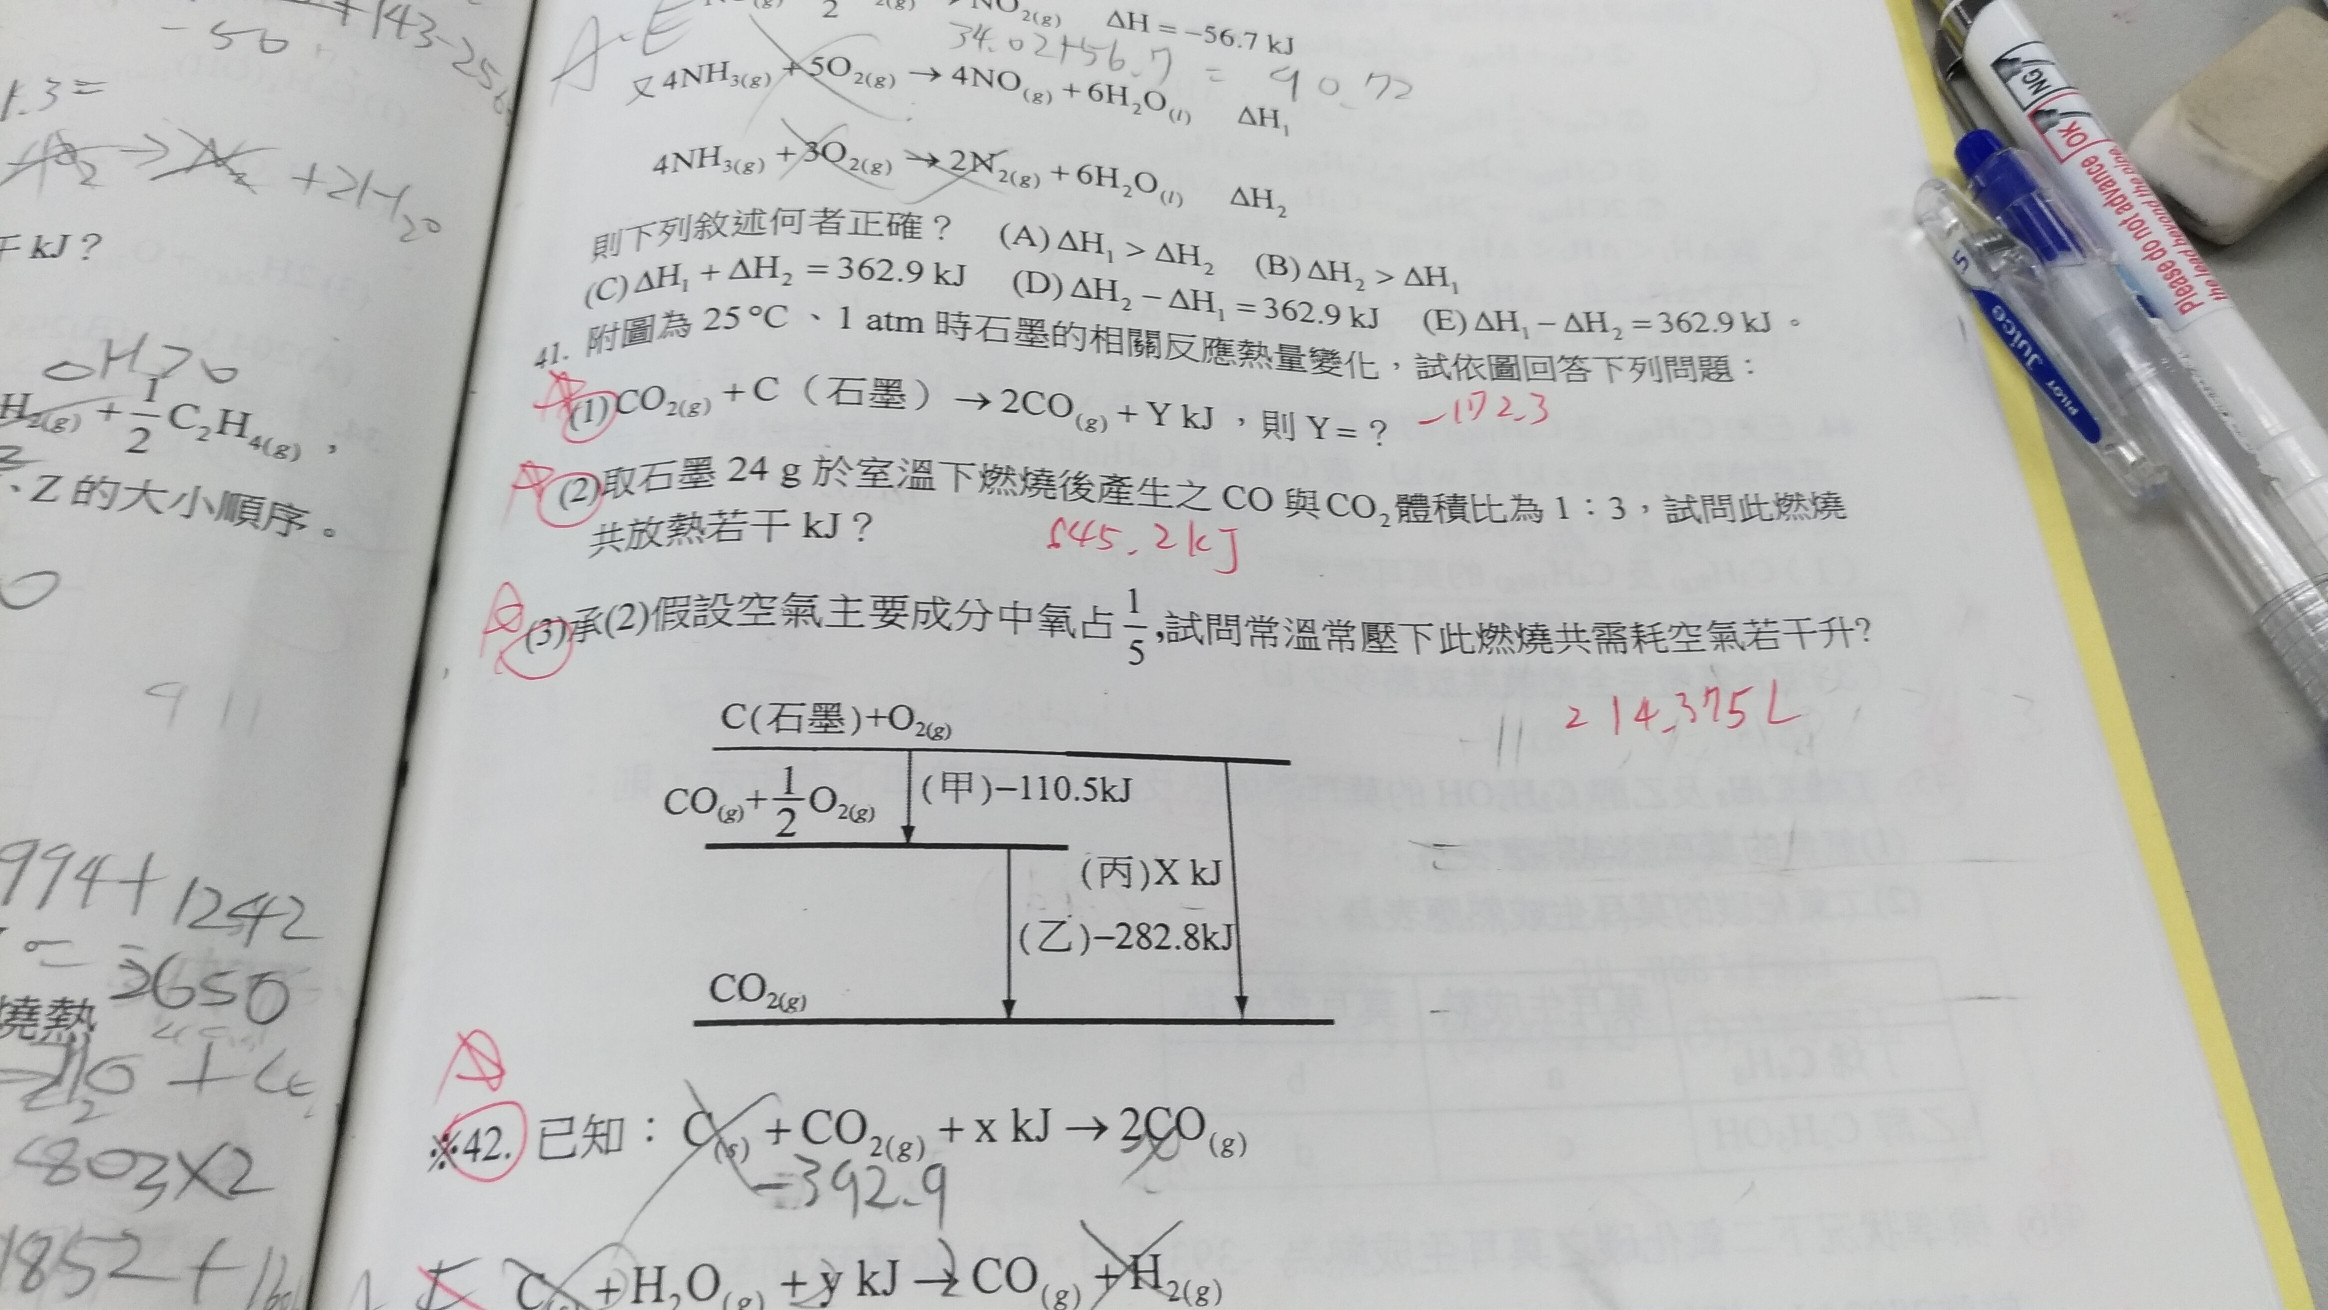 +143-256
-50
1.3=
+2H₂O
kJ？
H₂(g) + 1/2 C₂H₄(g)，
、Z 的大小順序。
9 11
994+1242
= 3650
燒熱
4803×2
1852+
NO₂(g) ΔH = −56.7 kJ
34.02+56.7 = 90.72
A.E
又 4NH₃(g) + 5O₂(g) → 4NO(g) + 6H₂O(l) ΔH₁
4NH₃(g) + 3O₂(g) → 2N₂(g) + 6H₂O(l) ΔH₂
則下列敘述何者正確？ (A) ΔH₁ > ΔH₂ (B) ΔH₂ > ΔH₁
(C) ΔH₁ + ΔH₂ = 362.9 kJ (D) ΔH₂ − ΔH₁ = 362.9 kJ (E) ΔH₁ − ΔH₂ = 362.9 kJ。
41. 附圖為 25 ℃、1 atm 時石墨的相關反應熱量變化，試依圖回答下列問題：
(1) CO₂(g) + C（石墨）→ 2CO(g) + Y kJ，則 Y = ？ -172.3
(2)取石墨 24 g 於室溫下燃燒後產生之 CO 與 CO₂ 體積比為 1：3，試問此燃燒
共放熱若干 kJ？ 645.2kJ
(3)承(2)假設空氣主要成分中氧占 1/5，試問常溫常壓下此燃燒共需耗空氣若干升?
214.375L
C(石墨)+O₂(g)
(甲)−110.5kJ
CO(g)+1/2 O₂(g)
(丙)X kJ
(乙)−282.8kJ
CO₂(g)
※42. 已知：C(s) + CO₂(g) + x kJ → 2CO(g)
-392.9
+ H₂O(g) + y kJ → CO(g) + H₂(g)
NG
OK
Please do not advance
the lead beyond the pipe.
Juice
PILOT
5